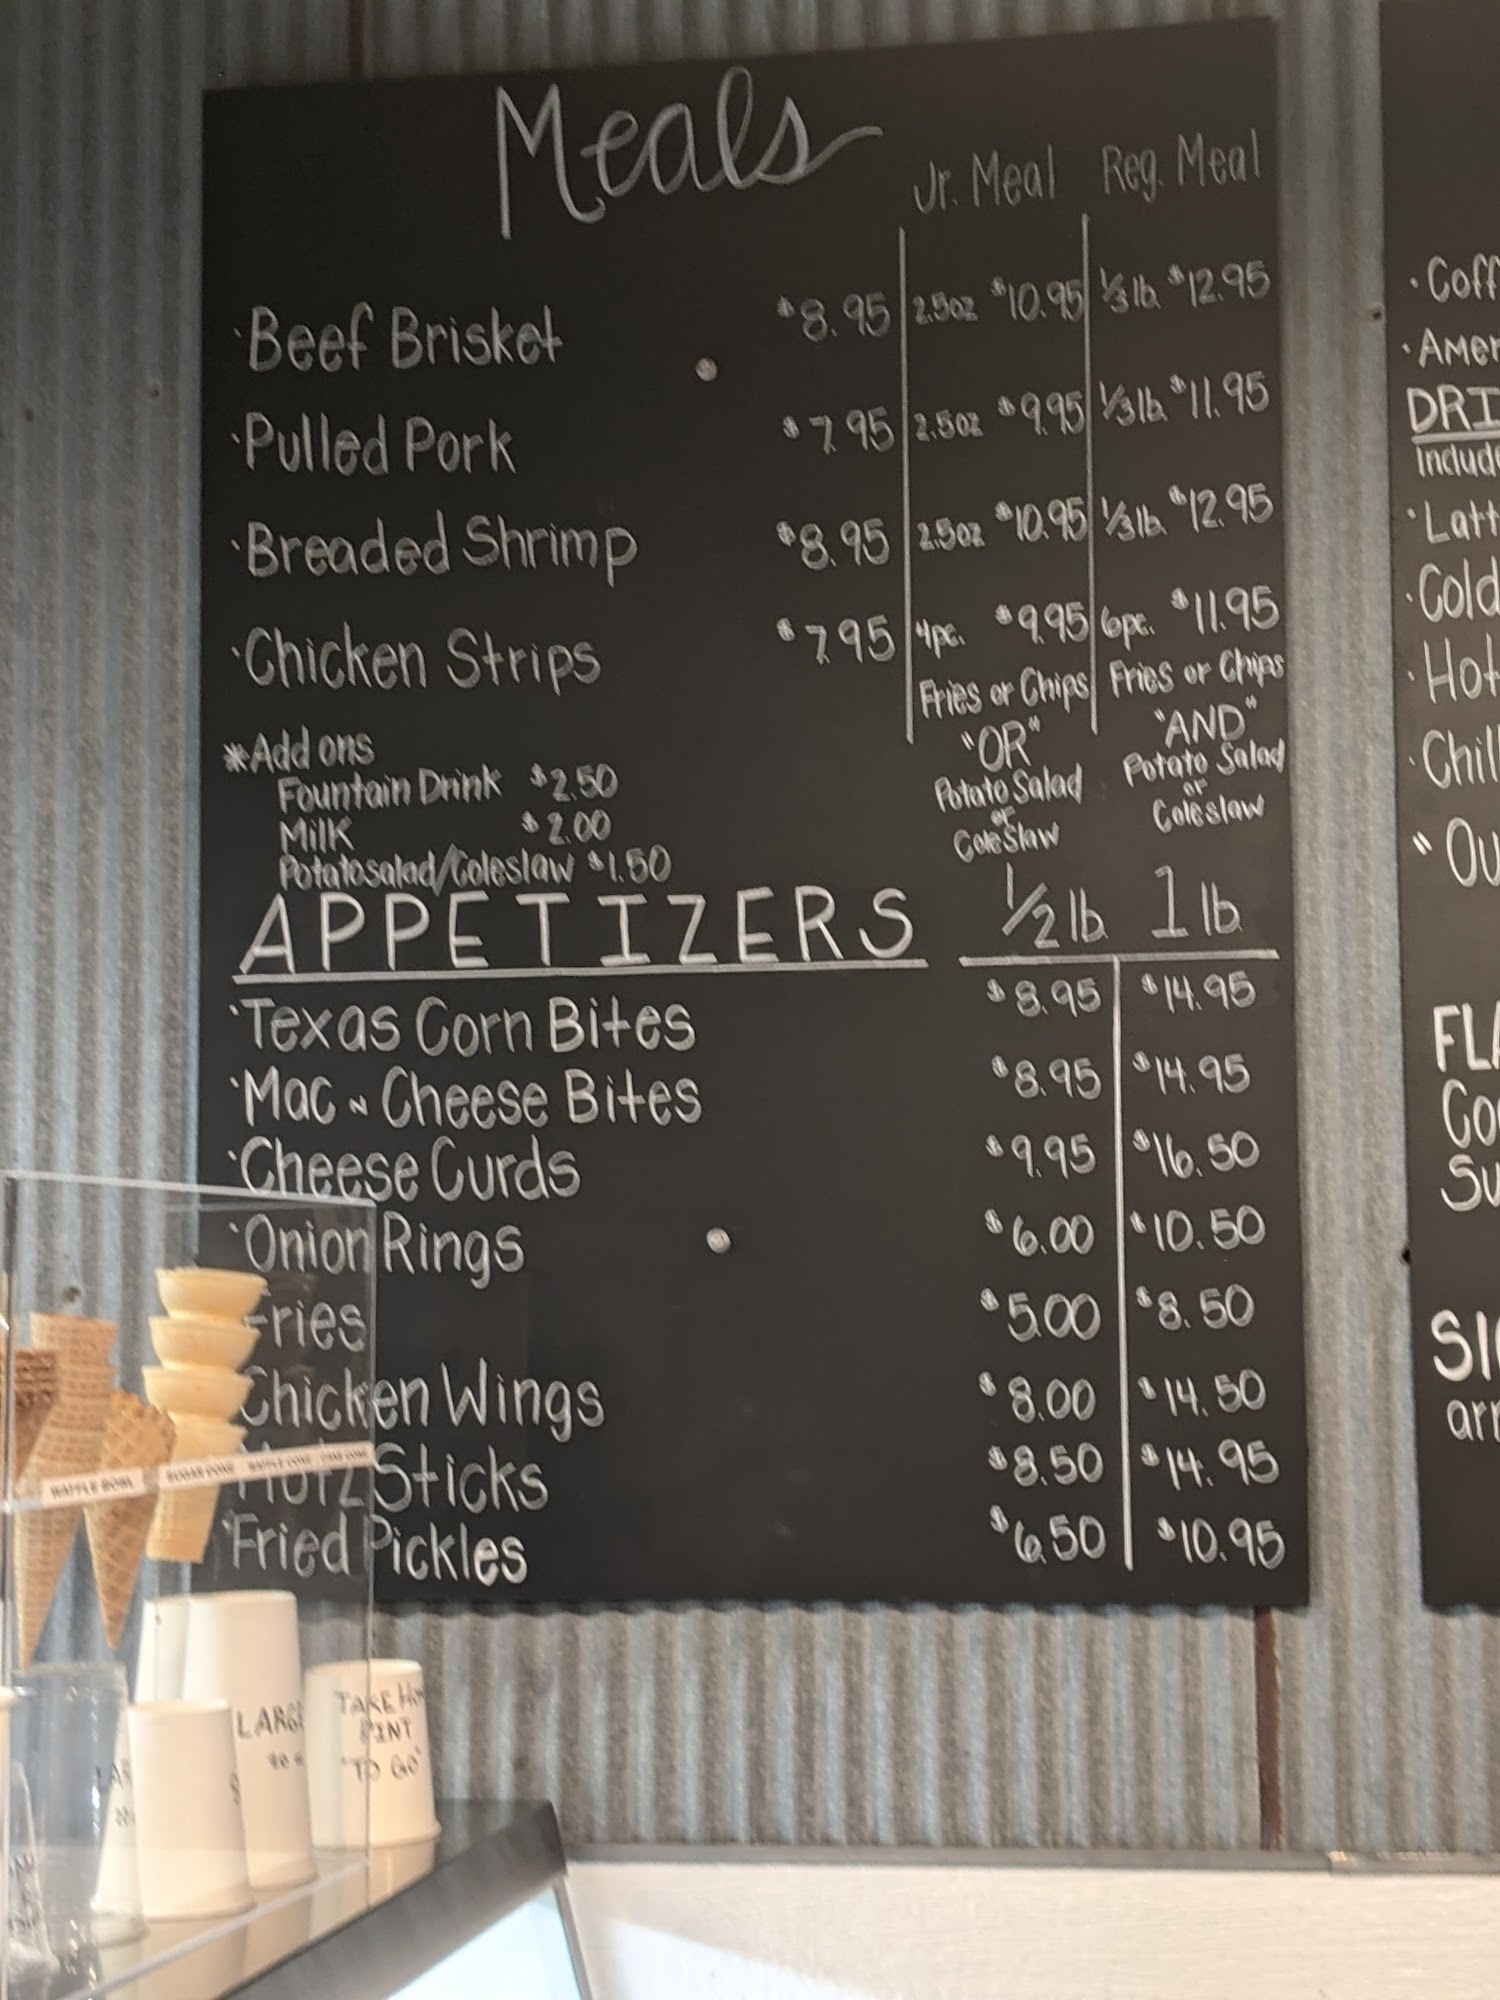 Meals
Jr. Meal Reg. Meal
·Beef Brisket $8.95 2.5oz $10.95 1/3 lb. $12.95
·Pulled Pork $7.95 2.5oz $9.95 1/3 lb. $11.95
·Breaded Shrimp $8.95 2.5oz $10.95 1/3 lb. $12.95
·Chicken Strips $7.95 4pc. $9.95 6pc. $11.95
Fries or Chips Fries or Chips
"OR" "AND"
Potato Salad Potato Salad
or or
Coleslaw Coleslaw
*Add ons
Fountain Drink $2.50
Milk $2.00
Potatosalad/Coleslaw $1.50
APPETIZERS 1/2 lb. 1 lb.
·Texas Corn Bites $8.95 $14.95
·Mac n Cheese Bites $8.95 $14.95
·Cheese Curds $9.95 $16.50
·Onion Rings $6.00 $10.50
Fries $5.00 $8.50
Chicken Wings $8.00 $14.50
Sticks $8.50 $14.95
·Fried Pickles $6.50 $10.95
·Coff
·Amer
DRI
Includ
·Latt
·Cold
·Hot
·Chil
"Ou
FLA
Co
Su
SI
WAFFLE BOWL SUGAR CONE WAFFLE CONE CAKE CONE
LARG
TAKE HO
PINT
"TO GO"